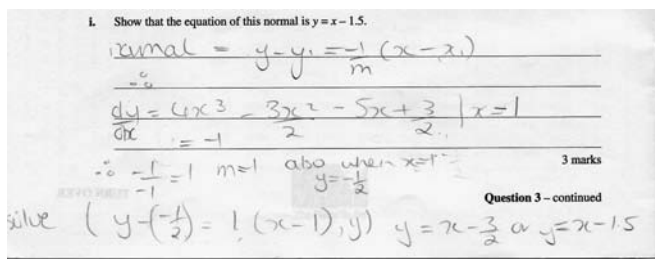 i. Show that the equation of this normal is y = x – 1.5.
normal = y - y₁ = -1/m (x - x₁)
∴
dy/dx = 4x³ - 3x²/2 - 5x + 3/2 | x=1
= -1
∴ -1/-1 = 1 m=1 also when x=1
y = -1/2
3 marks
Question 3 – continued
TURN OVER
solve ( y-(-1/2) = 1 (x-1), y) y = x - 3/2 or y = x - 1.5